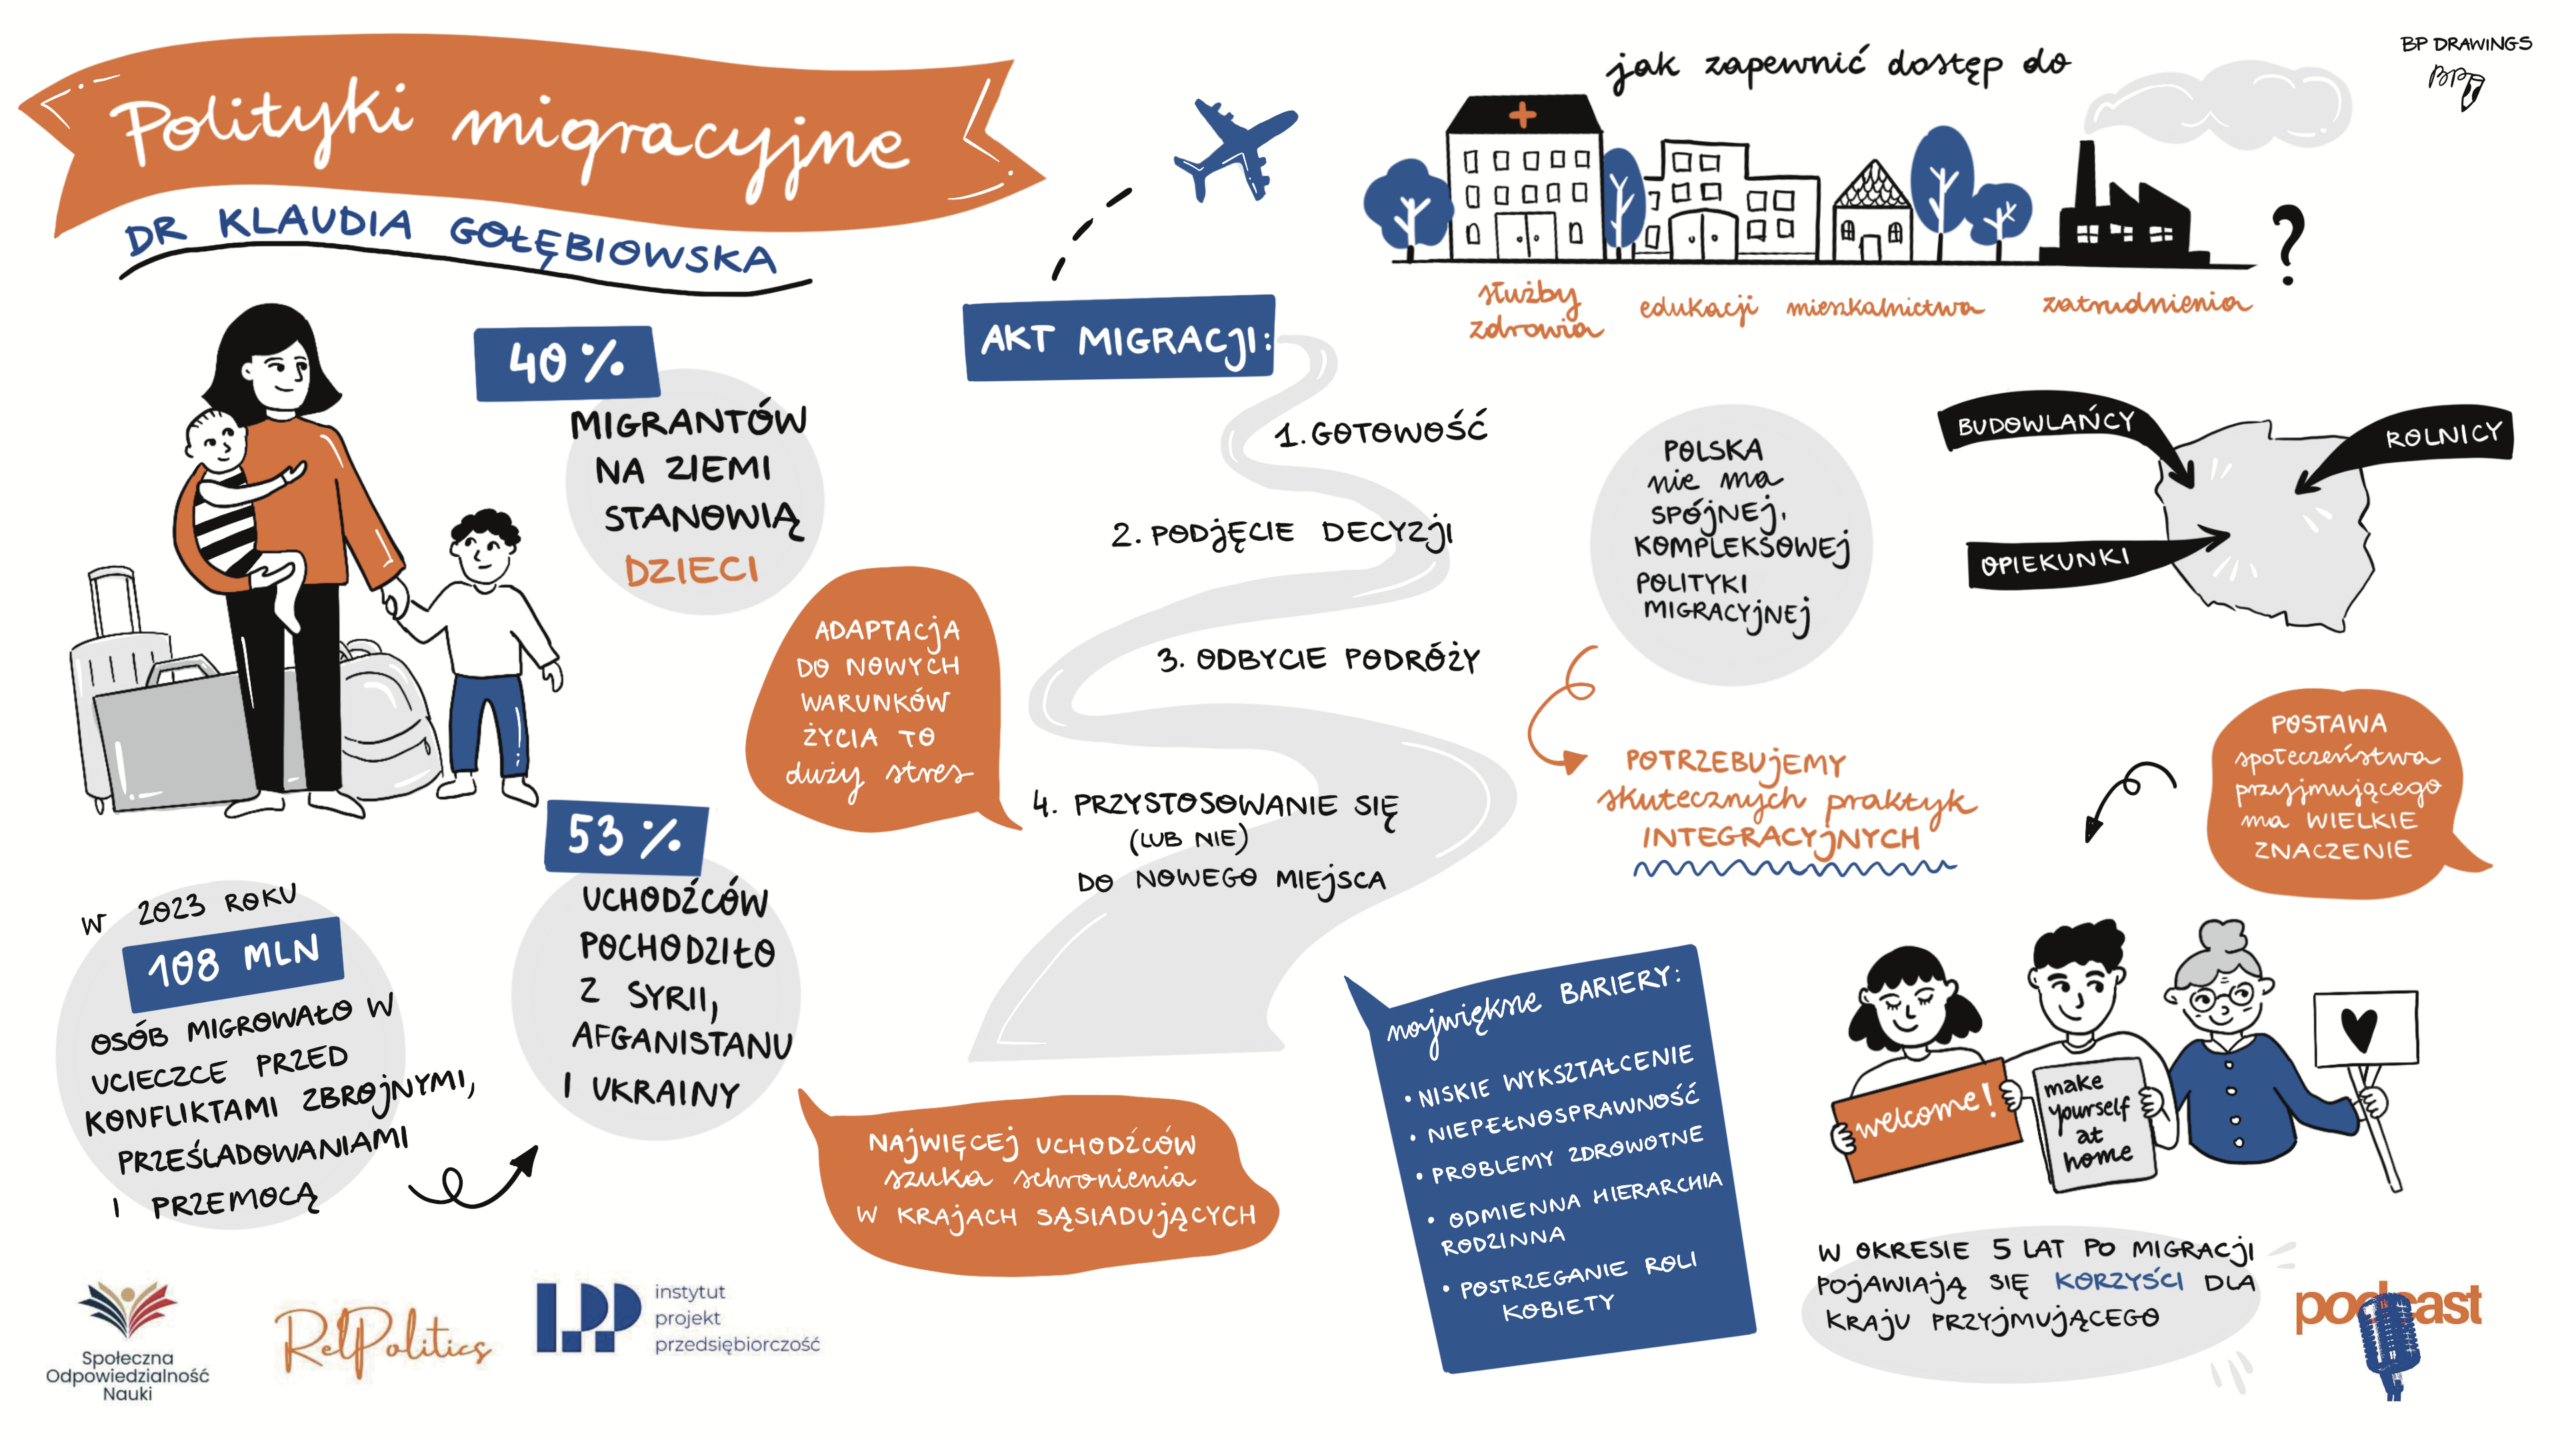 Polityki migracyjne
DR KLAUDIA GOŁĘBIOWSKA
40%
MIGRANTÓW
NA ZIEMI
STANOWIĄ
DZIECI
W 2023 ROKU
108 MLN
OSÓB MIGROWAŁO W
UCIECZCE PRZED
KONFLIKTAMI ZBROJNYMI,
PRZEŚLADOWANIAMI
I PRZEMOCĄ
53%
UCHODŹCÓW
POCHODZIŁO
Z SYRII,
AFGANISTANU
I UKRAINY
NAJWIĘCEJ UCHODŹCÓW
szuka schronienia
W KRAJACH SĄSIADUJĄCYCH
AKT MIGRACJI:
1. GOTOWOŚĆ
2. PODJĘCIE DECYZJI
3. ODBYCIE PODRÓŻY
4. PRZYSTOSOWANIE SIĘ
(LUB NIE)
DO NOWEGO MIEJSCA
ADAPTACJA
DO NOWYCH
WARUNKÓW
ŻYCIA TO
duży stres
jak zapewnić dostęp do
służby
zdrowia
edukacji
mieszkalnictwa
zatrudnienia
?
POLSKA
nie ma
SPÓJNEJ,
KOMPLEKSOWEJ
POLITYKI
MIGRACYJNEJ
BUDOWLAŃCY
ROLNICY
OPIEKUNKI
POTRZEBUJEMY
skutecznych praktyk
INTEGRACYJNYCH
POSTAWA
społeczeństwa
przyjmującego
ma WIELKIE
ZNACZENIE
największe BARIERY:
• NISKIE WYKSZTAŁCENIE
• NIEPEŁNOSPRAWNOŚĆ
• PROBLEMY ZDROWOTNE
• ODMIENNA HIERARCHIA
RODZINNA
• POSTRZEGANIE ROLI
KOBIETY
welcome!
make
yourself
at
home
W OKRESIE 5 LAT PO MIGRACJI
POJAWIAJĄ SIĘ KORZYŚCI DLA
KRAJU PRZYJMUJĄCEGO
BP DRAWINGS
BP
Społeczna
Odpowiedzialność
Nauki
RelPolitics
IPP
instytut
projekt
przedsiębiorczość
podcast